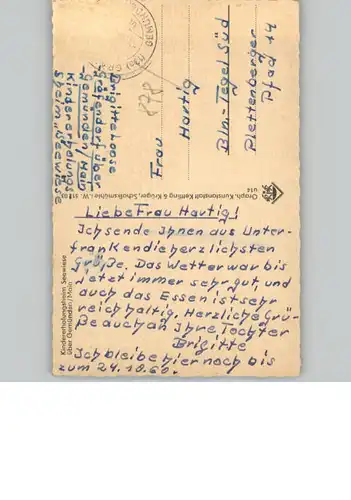 Kindererholungsheim Seewiese
über Gemünden/Main
Liebe Frau Hartig!
Ich sende Ihnen aus Unter-
franken die herzlichsten
Grüße. Das Wetter war bis
jetzt immer sehr gut und
auch das Essen ist sehr
reichhaltig. Herzliche Grü-
ße auch an Ihre Tochter
Brigitte
Ich bleibe hier noch bis
zum 24.10.60.
Orogr. Kunstanstalt Kettling & Krüger, Schalksmühle i.W.
Brigitte Loose
Gräfendorf über
Gemünden Main
Kindererholungs
heim "Seewiese
878
Frau
Hartig
Bln.-Tegel Süd
Plettenberger
Pfad 44